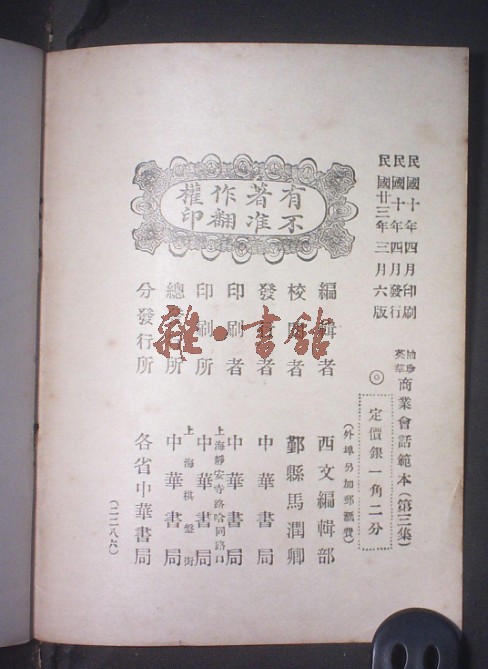 民國十年四月印刷
民國十年四月發行
民國廿三年三月六版
英華商業會話範本（第三集）
◎定價銀一角二分
（外埠另加郵滙費）
有著作權
不准翻印
編輯者 西文編輯部
校閱者 鄞縣馬潤卿
發行者 中華書局
印刷者 中華書局
上海靜安寺路哈同路口
印刷所 中華書局
上海棋盤街
總發行所 中華書局
分發行所 各省中華書局
（二二八六）
雜·書館